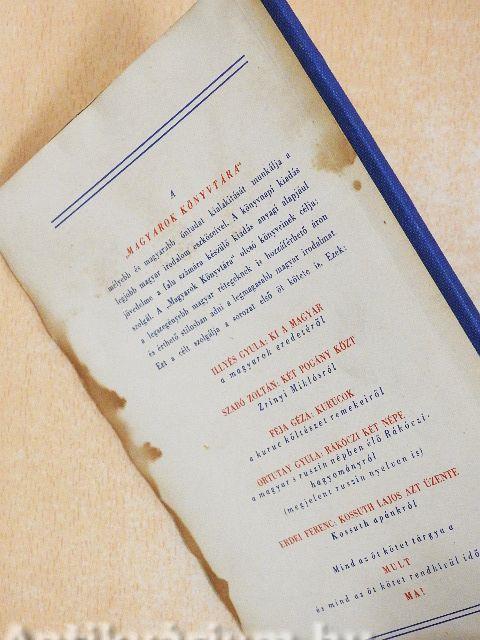 A
„MAGYAROK KÖNYVTÁRA"
mélyebb és magyarabb öntudat kialakítását munkálja a
legjobb magyar irodalom eszközeivel. A könyvnapi kiadás
jövedelme a falu számára készülő kiadás anyagi alapjául
szolgál. A „Magyarok Könyvtára" olcsó könyveinek célja:
a legszegényebb magyar rétegeknek is hozzáférhető áron
és érthető stílusban adni a legmagasabb magyar irodalmat
Ezt a célt szolgálja a sorozat első öt kötete is. Ezek:
ILLYÉS GYULA: KI A MAGYAR
a magyarok eredetéről
SZABÓ ZOLTÁN: KÉT POGÁNY KÖZT
Zrinyi Miklósról
FÉJA GÉZA: KURUCOK
a kuruc költészet remekeiről
ORTUTAY GYULA: RÁKÓCZI KÉT NÉPE
a magyar s ruszin népben élő Rákóczi-
hagyományról
(megjelent ruszin nyelven is)
ERDEI FERENC: KOSSUTH LAJOS AZT ÜZENTE
Kossuth apánkról
Mind az öt kötet tárgya a
MULT
és mind az öt kötet rendkívül idő
MA!
Antikvárium.hu